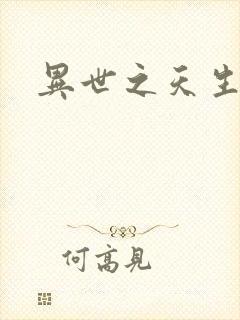 異世之天生
何高見